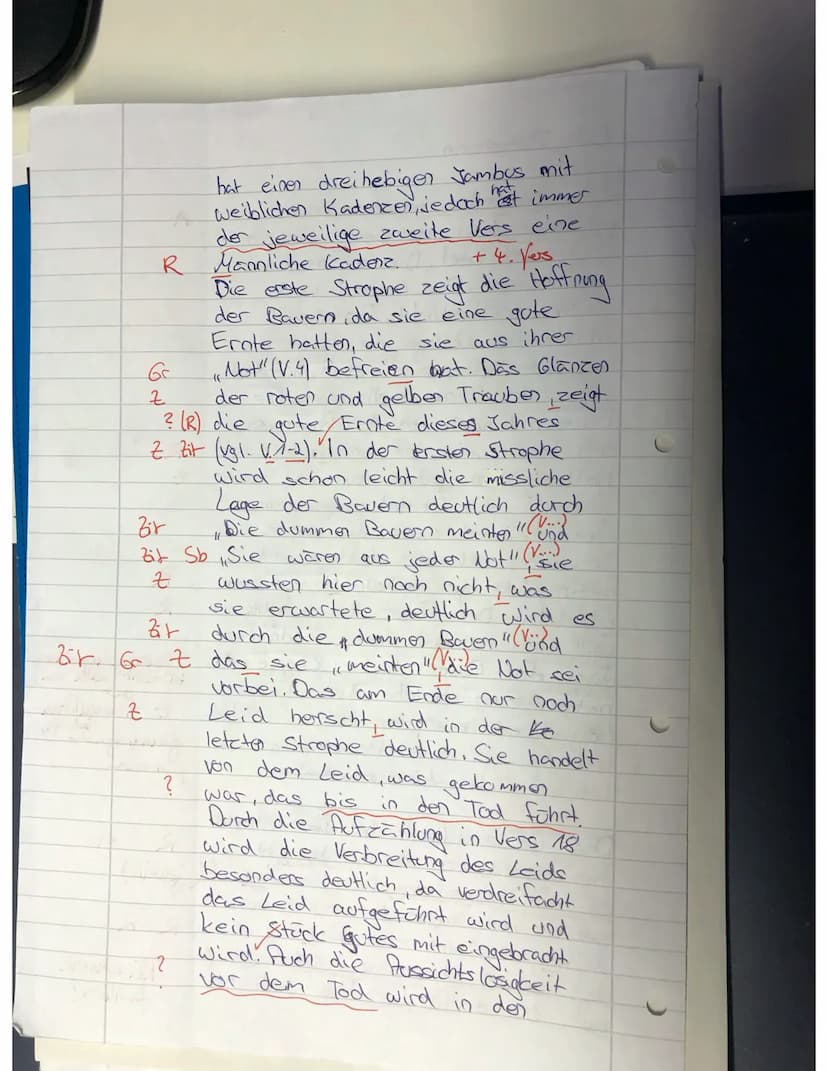 hat einen dreihebigen Jambus mit
weiblichen Kadenzen, jedoch hat ist immer
der jeweilige zweite Vers eine
R Mannliche Kadenz. + 4. Vers
Die erste Strophe zeigt die Hoffnung
der Bauern, da sie eine gute
Ernte hatten, die sie aus ihrer
Gr „Not" (V.4) befreien hat. Das Glänzen
Z der roten und gelben Trauben, zeigt
? (R) die gute Ernte dieses Jahres
Z Zit (vgl. V.1-2). In der ersten Strophe
wird schon leicht die missliche
Lage der Bauern deutlich durch
Zit „Die dummen Bauern meinten" (V...) und
Zit Sb „Sie wären aus jeder Not" (V...), sie
Z wussten hier noch nicht, was
sie erwartete, deutlich wird es
Zit durch die „dummen Bauern" (V...) und
Zit. Gr Z das sie „meinten" (V...), die Not sei
vorbei. Das am Ende nur noch
Z Leid herscht, wird in der Ke
letzten Strophe deutlich. Sie handelt
von dem Leid, was gekommen
? war, das bis in den Tod führt.
Durch die Aufzählung in Vers 18
wird die Verbreitung des Leids
besonders deutlich, da verdreifacht
das Leid aufgeführt wird und
kein Stück Gutes mit eingebracht
wird. Auch die Aussichtslosigkeit
? vor dem Tod wird in den